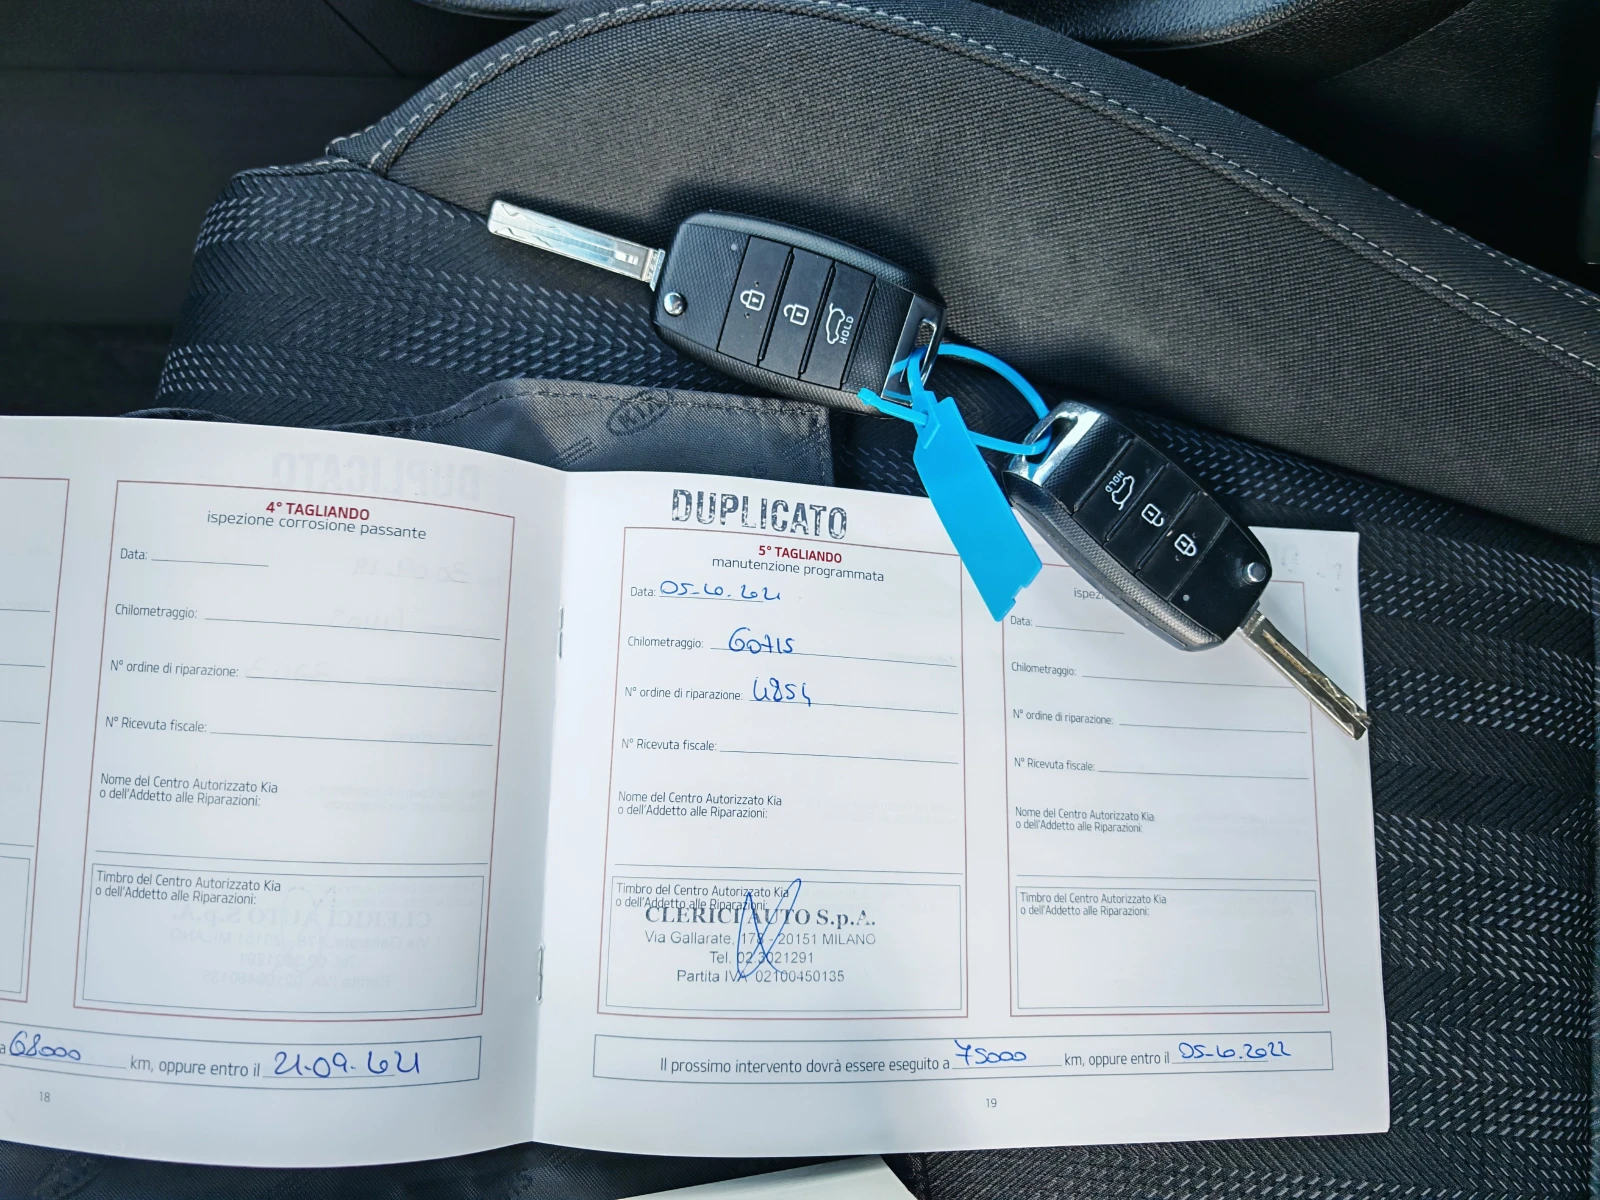 HOLD
KIA
HOLD
4° TAGLIANDO
ispezione corrosione passante
Data:
Chilometraggio:
N° ordine di riparazione:
N° Ricevuta fiscale:
Nome del Centro Autorizzato Kia
o dell'Addetto alle Riparazioni:
Timbro del Centro Autorizzato Kia
o dell'Addetto alle Riparazioni:
a 68000 km, oppure entro il 21.09.2021
18
DUPLICATO
5° TAGLIANDO
manutenzione programmata
Data: 05-10.2021
Chilometraggio: 60715
N° ordine di riparazione: 4854
N° Ricevuta fiscale:
Nome del Centro Autorizzato Kia
o dell'Addetto alle Riparazioni:
Timbro del Centro Autorizzato Kia
o dell'Addetto alle Riparazioni:
CLERICI AUTO S.p.A.
Via Gallarate, 178 - 20151 MILANO
Tel. 02.3021291
Partita IVA 02100450135
Data:
Chilometraggio:
N° ordine di riparazione:
N° Ricevuta fiscale:
Nome del Centro Autorizzato Kia
o dell'Addetto alle Riparazioni:
Timbro del Centro Autorizzato Kia
o dell'Addetto alle Riparazioni:
Il prossimo intervento dovrà essere eseguito a 75000 km, oppure entro il 05-10.2022
19